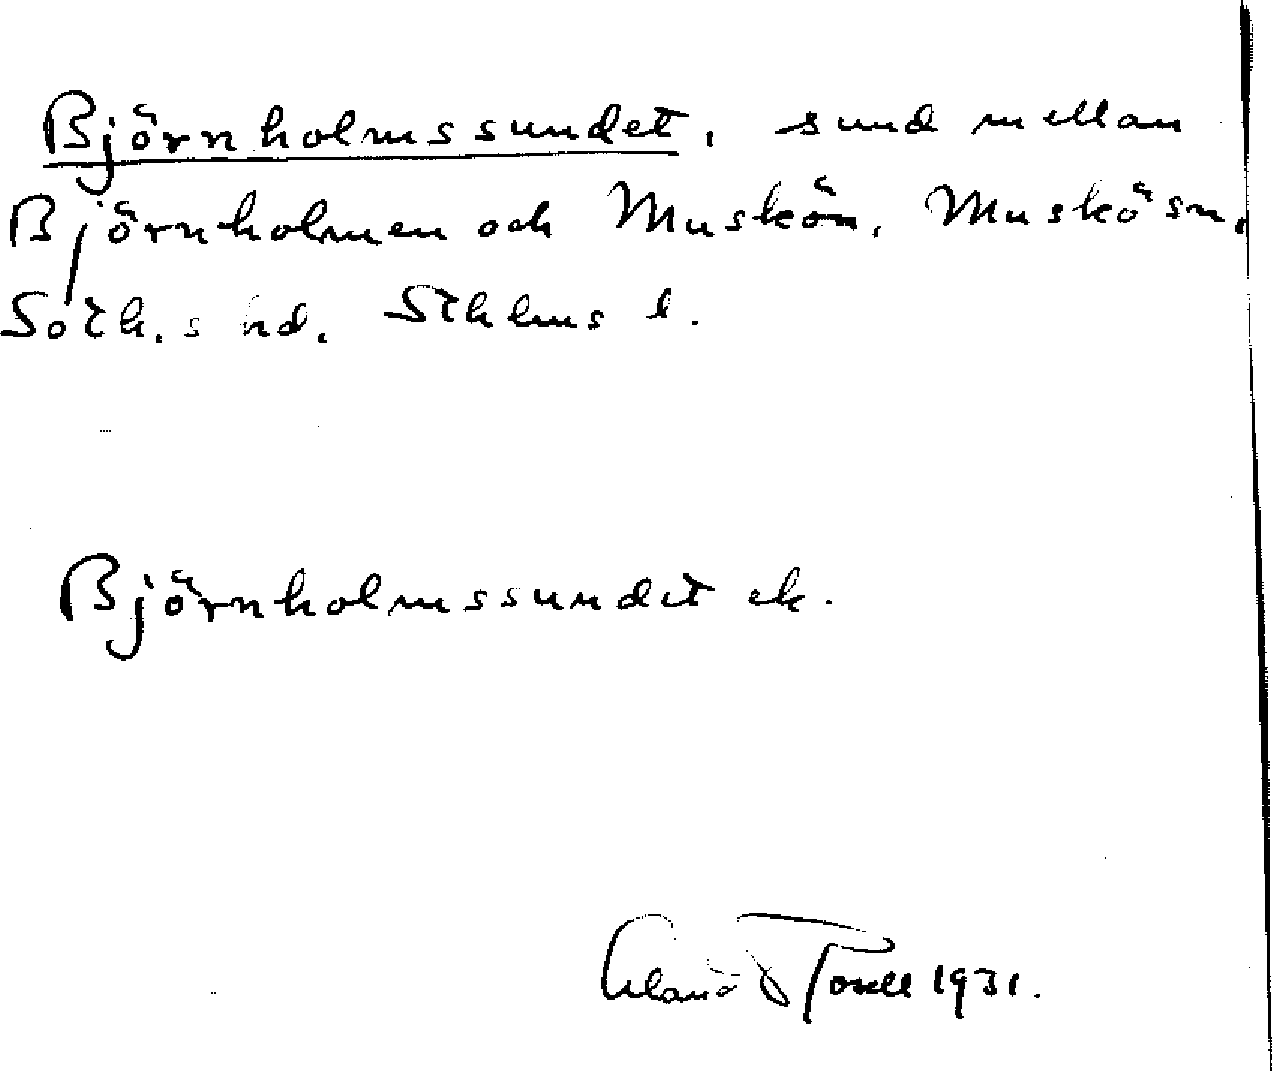 Björnholmssundet, sund mellan
Björnholmen och Muskön, Muskö sn,
Soth.s hd. Sthlms l.
Björnholmssundet ek.
Torell 1931.